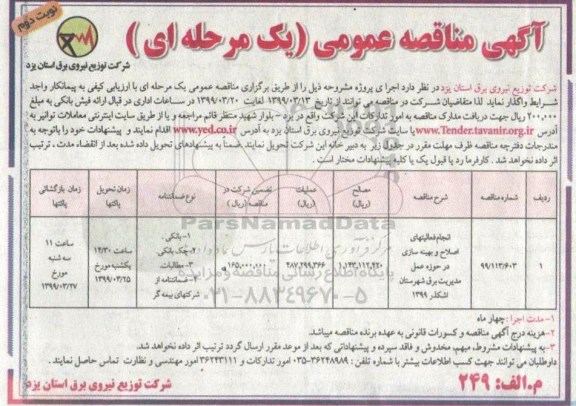 نوبت دوم
آگهی مناقصه عمومی (یک مرحله ای)
شرکت توزیع نیروی برق استان یزد
شرکت توزیع نیروی برق استان یزد در نظر دارد اجرا ی پروژه مشروحه ذیل را از طریق برگزاری مناقصه عمومی یک مرحله ای با ارزیابی کیفی به پیمانکار واجد
شرایط واگذار نماید. لذا متقاضیان شرکت در مناقصه می توانند از تاریخ ۱۳۹۹/۰۳/۱۳ لغایت ۱۳۹۹/۰۳/۲۰ در ساعات اداری در قبال ارائه فیش بانکی به مبلغ
۲۰۰,۰۰۰ ریال جهت دریافت مدارک مناقصه به امور تدارکات این شرکت واقع در یزد - بلوار شهید منتظر قائم مراجعه و یا از طریق سایت اینترنتی معاملات توانیر به
آدرس www.Tender.tavanir.org.ir یا سایت شرکت توزیع برق استان یزد به آدرس www.yed.co.ir اقدام نمایند و پیشنهادات خود را باتوجه به
مندرجات دفترچه مناقصه ظرف مهلت مقرر در جدول زیر به دبیر خانه این شرکت تحویل نمایند. ضمناً به پیشنهادهای تحویل داده شده بعد از انقضاء مدت ، ترتیب
اثر داده نخواهد شد . کارفرما رد یا قبول یک یا کلیه پیشنهادات مختار است .
ردیف شماره مناقصه شرح مناقصه مصالح (ریال) عملیات (ریال) تضمین شرکت در مناقصه (ریال) نوع ضمانتنامه زمان تحویل پاکتها زمان بازگشائی پاکتها
۱ ۹۹/۱۱۳/۶۰۳ انجام فعالیتهای اصلاح و بهینه سازی در حوزه عمل مدیریت برق شهرستان اشکذر ۱۳۹۹ ۱,۱۴۳,۱۱۲,۴۲۰ ۴۸۷,۲۹۹,۳۶۶ ۱۶۵,۰۰۰,۰۰۰
۱- بانکی .
۲- چک بانکی
۳- مطالبات.
۴- ضمانتنامه از شرکتهای بیمه گر
ساعت ۱۴/۳۰ یکشنبه مورخ ۱۳۹۹/۰۳/۲۵
ساعت ۱۱ سه شنبه مورخ ۱۳۹۹/۰۳/۲۷
ParsNamadData
پایگاه اطلاع رسانی مناقصه و مزایده
۰۲۱-۸۸۳۴۹۶۷۰-۵
۱- مدت اجرا : چهار ماه
۲- هزینه درج آگهی مناقصه و کسورات قانونی به عهده برنده مناقصه میباشد.
۳- به پیشنهادات مشروط، مبهم، مخدوش و فاقد سپرده و پیشنهاداتی که بعد از موعد مقرر ارسال گردد ترتیب اثر داده نخواهد شد.
داوطلبان می توانند جهت کسب اطلاعات بیشتر با شماره تلفن : ۳۶۲۴۸۹۸۹-۰۳۵ امور تدارکات و ۳۶۲۴۳۱۱۱ امور مهندسی و نظارت تماس حاصل نمایند .
م.الف: ۲۴۹
شرکت توزیع نیروی برق استان یزد